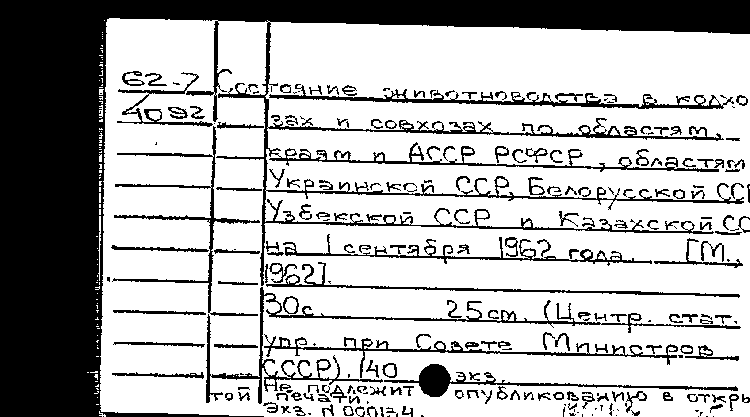 62-7 Состояние животноводства в колхо
4092
зах и совхозах по областям,
краям и АССР РСФСР, областям
Украинской ССР, Белорусской ССР
Узбекской ССР и Казахской СС
на 1 сентября 1962 года. [М.,
1962].
30с. 25см. (Центр. стат.
упр. при Совете Министров
СССР). 140 экз.
Не подлежит опубликованию в откры
той печати.
Экз. N 000134.